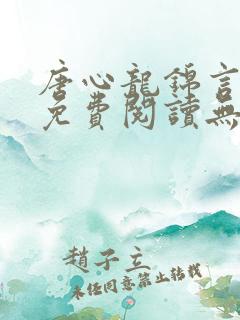 唐心龍錦言
免費閱讀無
趙子立
未經同意禁止轉載